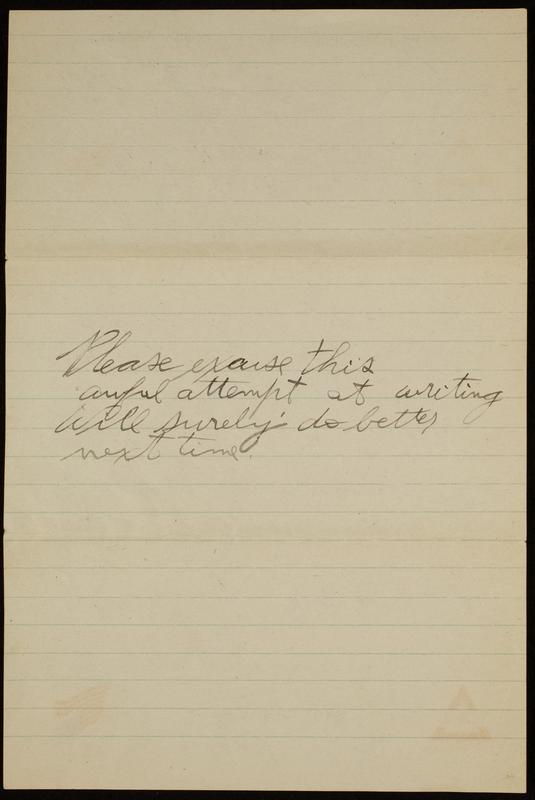 Please excuse this
awful attempt at writing
Will surely do better
next time.